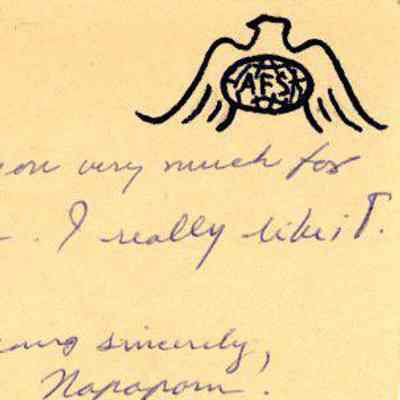 AFSK
you very much for
. I really like it.
Yours sincerely,
Napaporn.